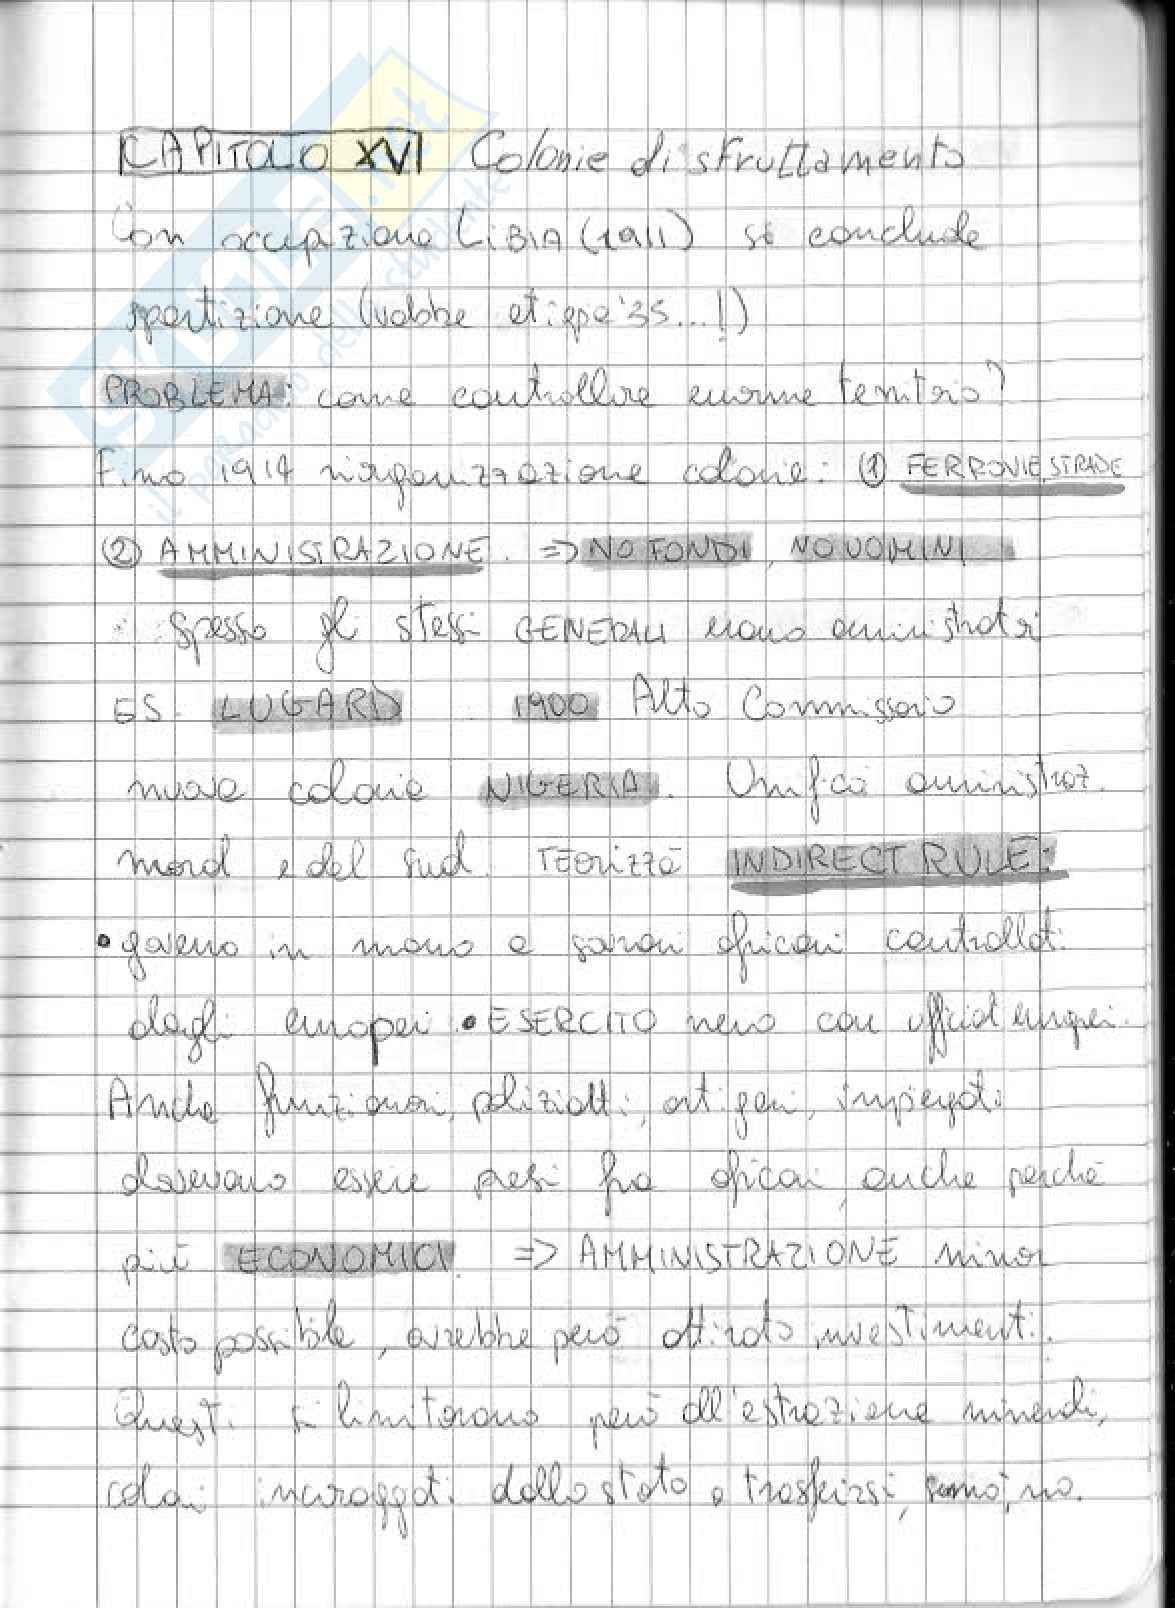 CAPITOLO XVI Colonie di sfruttamento
Con occupazione LIBIA (1911) si conclude
spartizione (vabbe etiopia '35...!)
PROBLEMA: come controllare enorme territorio?
Fino 1914 riorganizzazione colonie: (1) FERROVIE, STRADE
(2) AMMINISTRAZIONE. => NO FONDI, NO UOMINI
spesso gli stessi GENERALI erano amministratori
ES. LUGARD 1900 Alto Commissario
nuova colonia NIGERIA. Unificò amministraz.
nord e del sud. TEorizzò INDIRECT RULE:
• governo in mano a sovrani africani controllati
dagli europei • ESERCITO nero con ufficiali europei.
Anche funzionari, poliziotti, artigiani, impiegati
dovevano essere presi fra africani, anche perché
più ECONOMICI. => AMMINISTRAZIONE minor
costo possibile, avrebbe però attirato investimenti.
Questi si limitarono però all'estrazione minerali,
coloni incoraggiati dallo stato a trasferirsi, no.